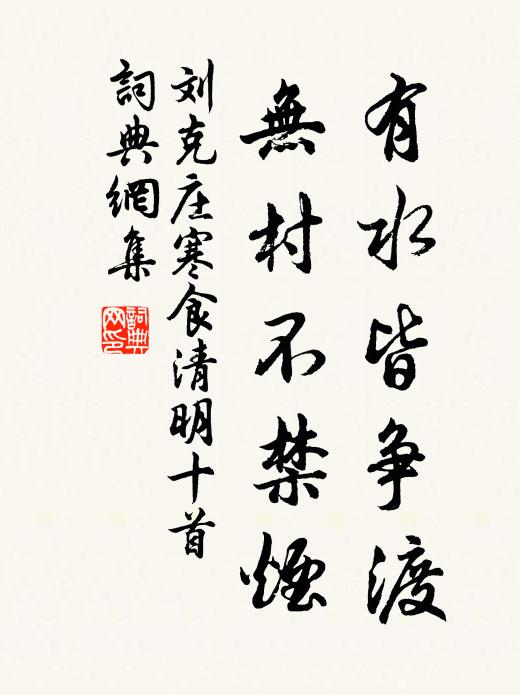 有水皆争渡
無村不禁煙
刘克庄寒食清明十首
詞典網集
詞典
网印